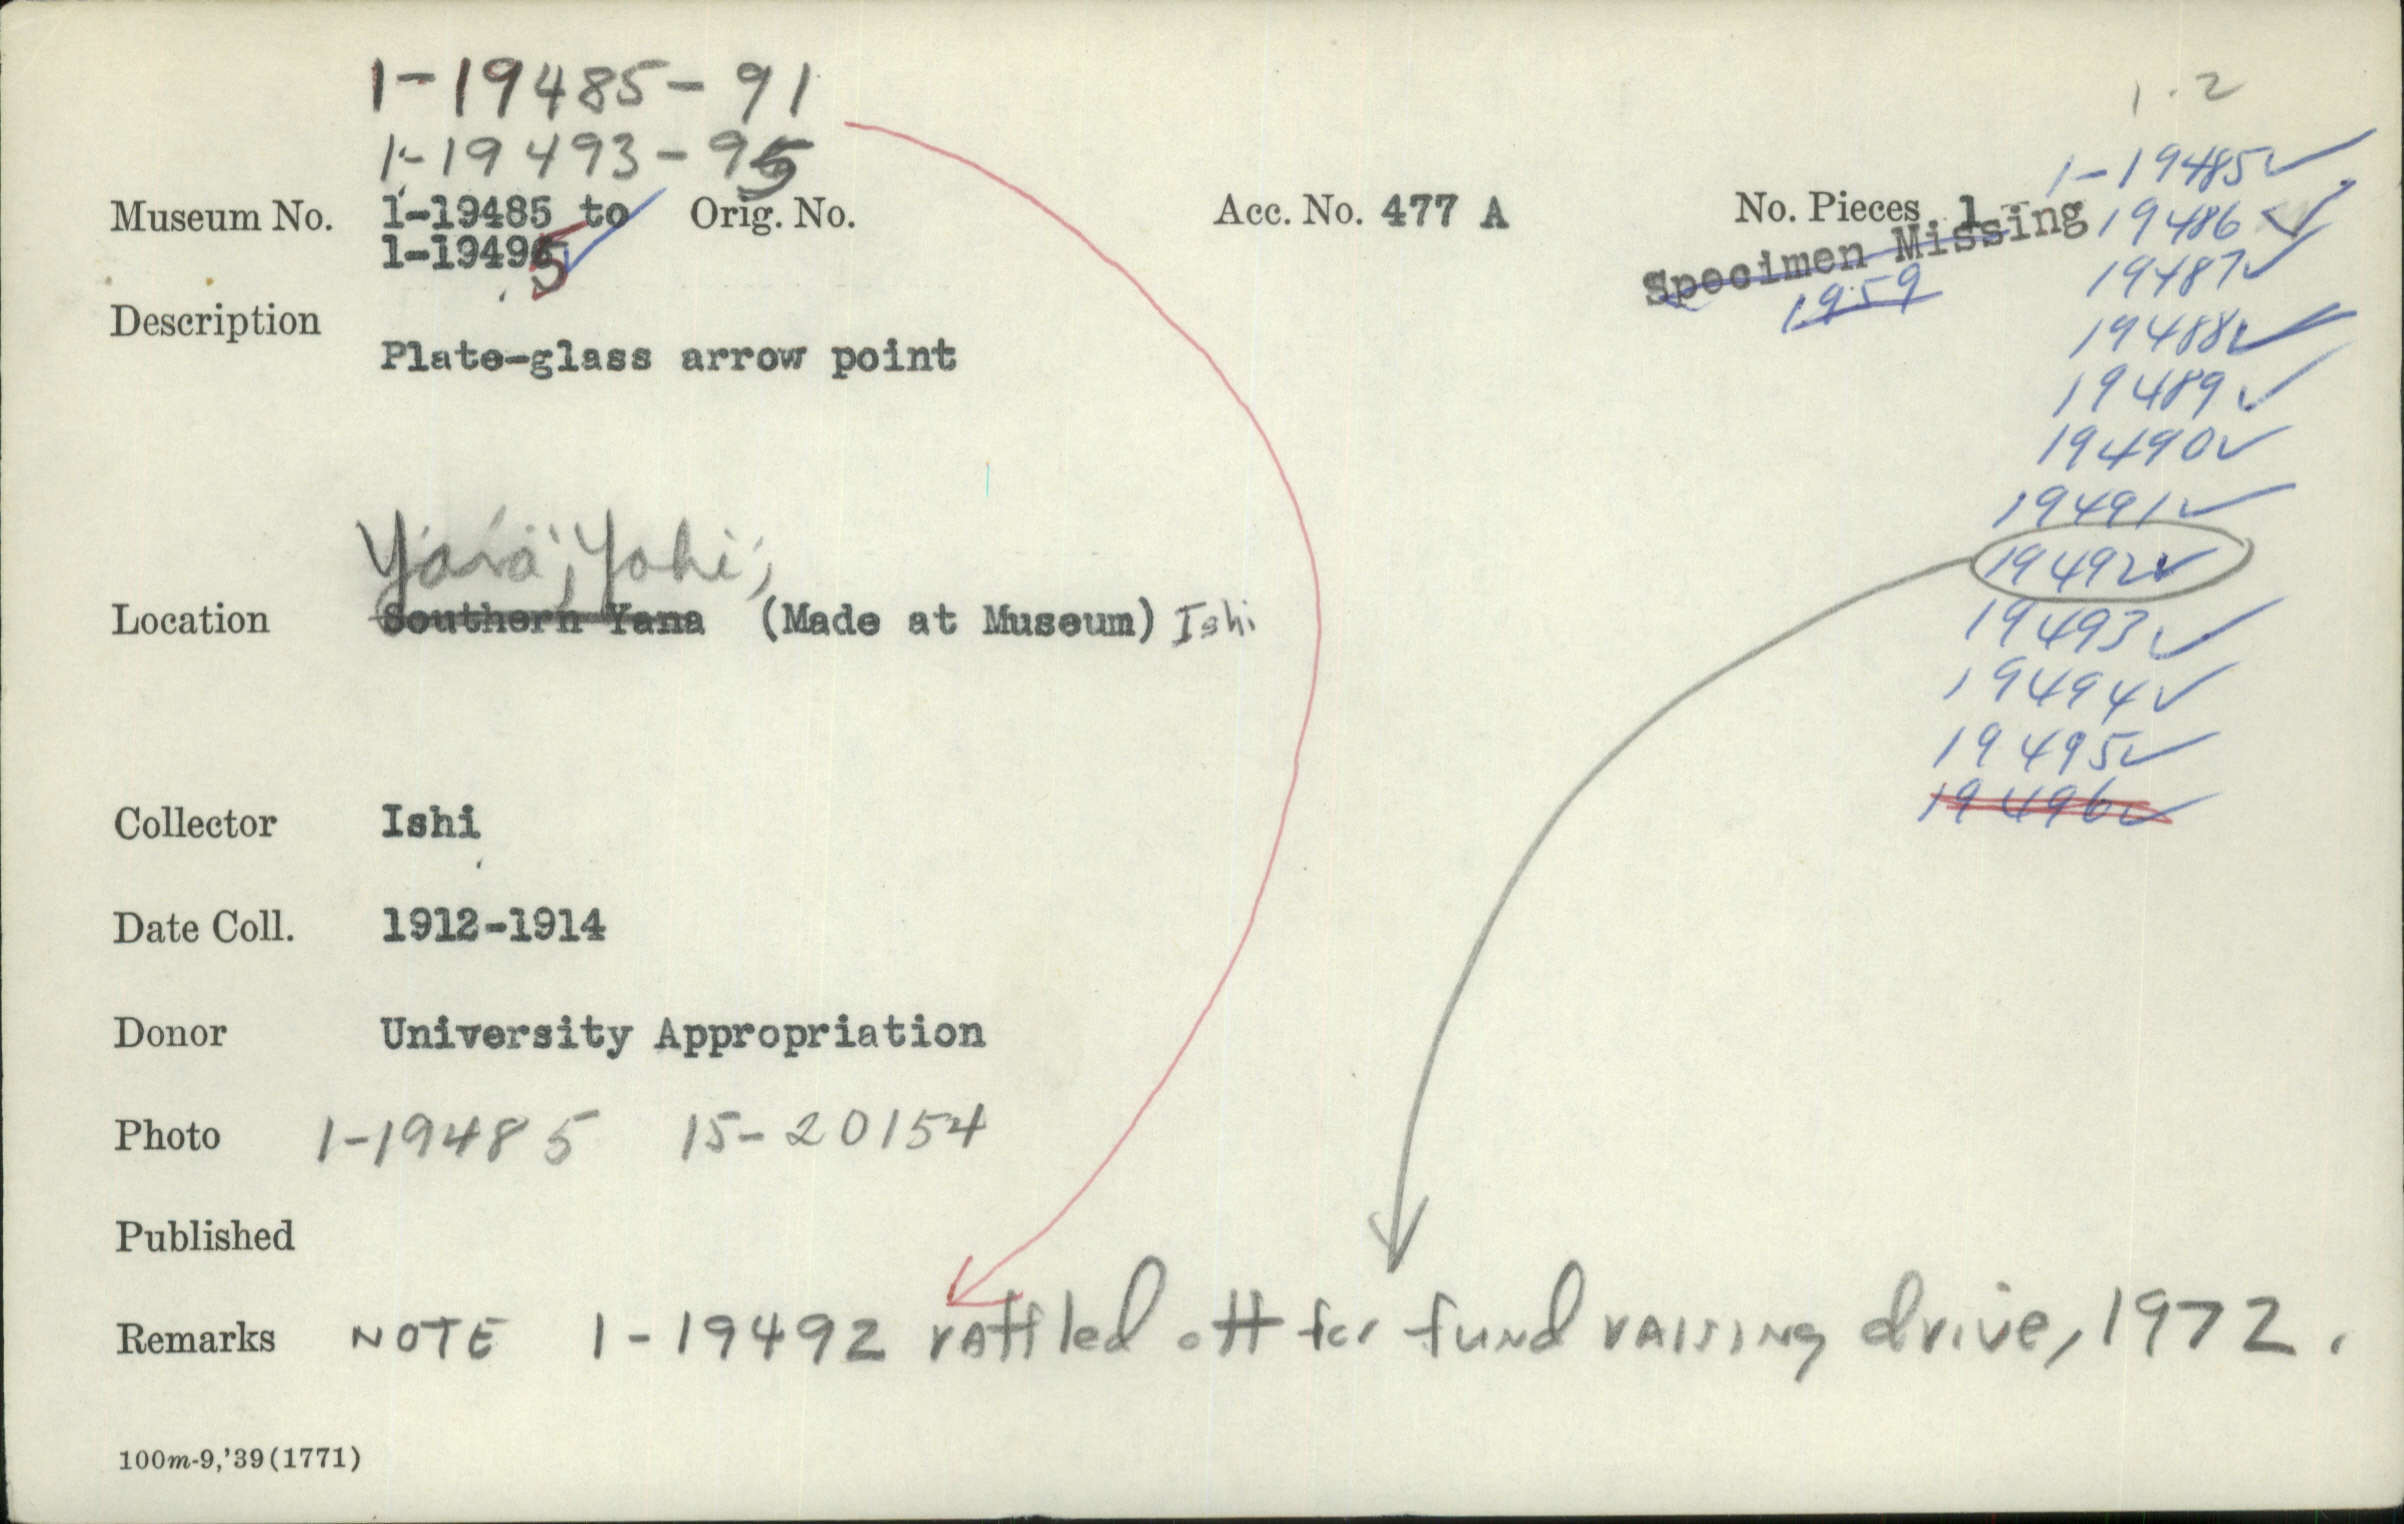 1-19485-91
1-19493-95
Museum No. 1-19485 to
1-19495
Orig. No.
Acc. No. 477 A
No. Pieces 1
Specimen Missing
1959
1-2
1-19485✓
19486✓
19487✓
19488✓
19489✓
19490✓
19491✓
19492✓
19493✓
19494✓
19495✓
19496✓
Description
Plate-glass arrow point
Yana; Yahi;
Location Southern Yana (Made at Museum) Ishi
Collector Ishi
Date Coll. 1912-1914
Donor University Appropriation
Photo 1-19485 15-20154
Published
Remarks NOTE 1-19492 raffled off for fund raising drive, 1972.
100m-9,'39(1771)